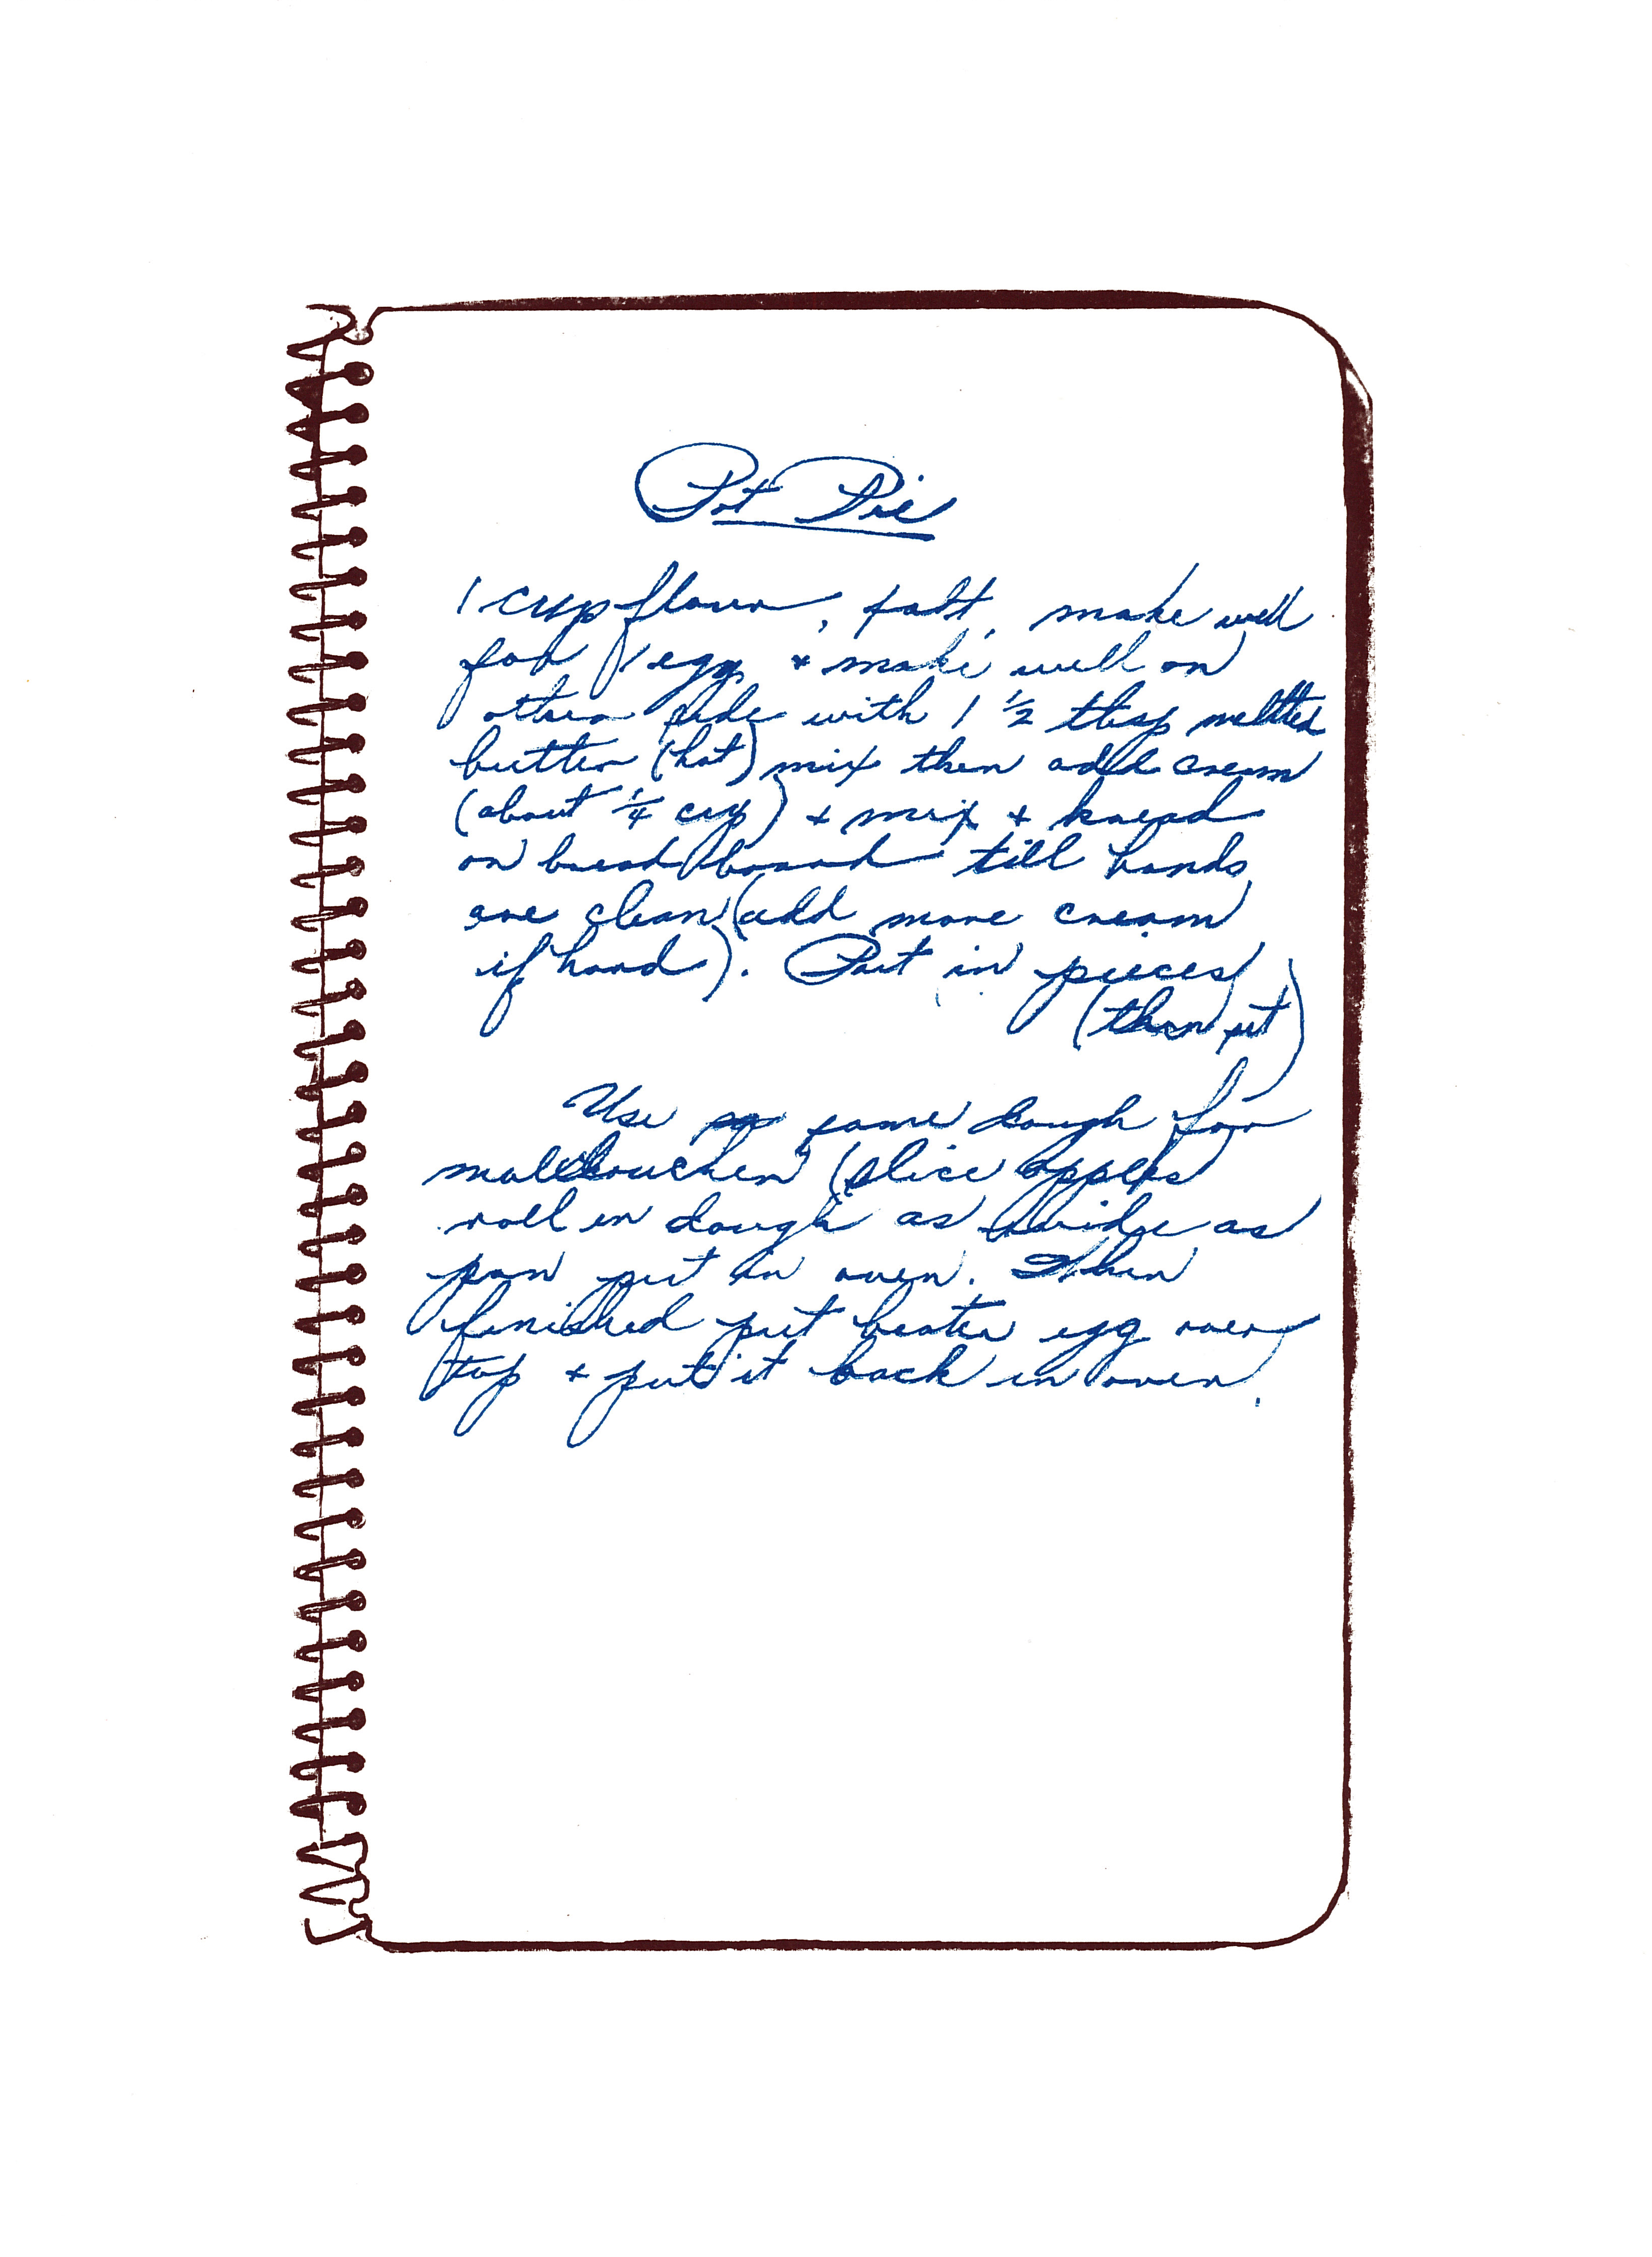 Pot Pie
1 cup flour, salt, make well
for 1 egg + make well on
other side with 1 1/2 tbsp meltted
butter (hot) mix then add cream
(about 1/4 cup) + mix + knead
on bread board till hands
are clean (add more cream
if hard). Part in pieces
(then put)
Use same dough for
(slice apples
roll in dough as wide as
pan put in oven. When
finished put beaten egg over
top + put it back in oven.